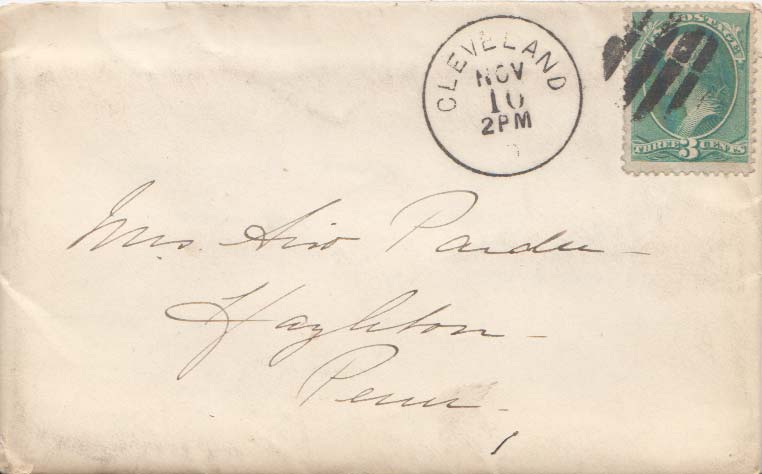 CLEVELAND
NOV
10
2 PM
POSTAGE
THREE 3 CENTS
Mrs. Ario Pardee
Hazleton
Penn.